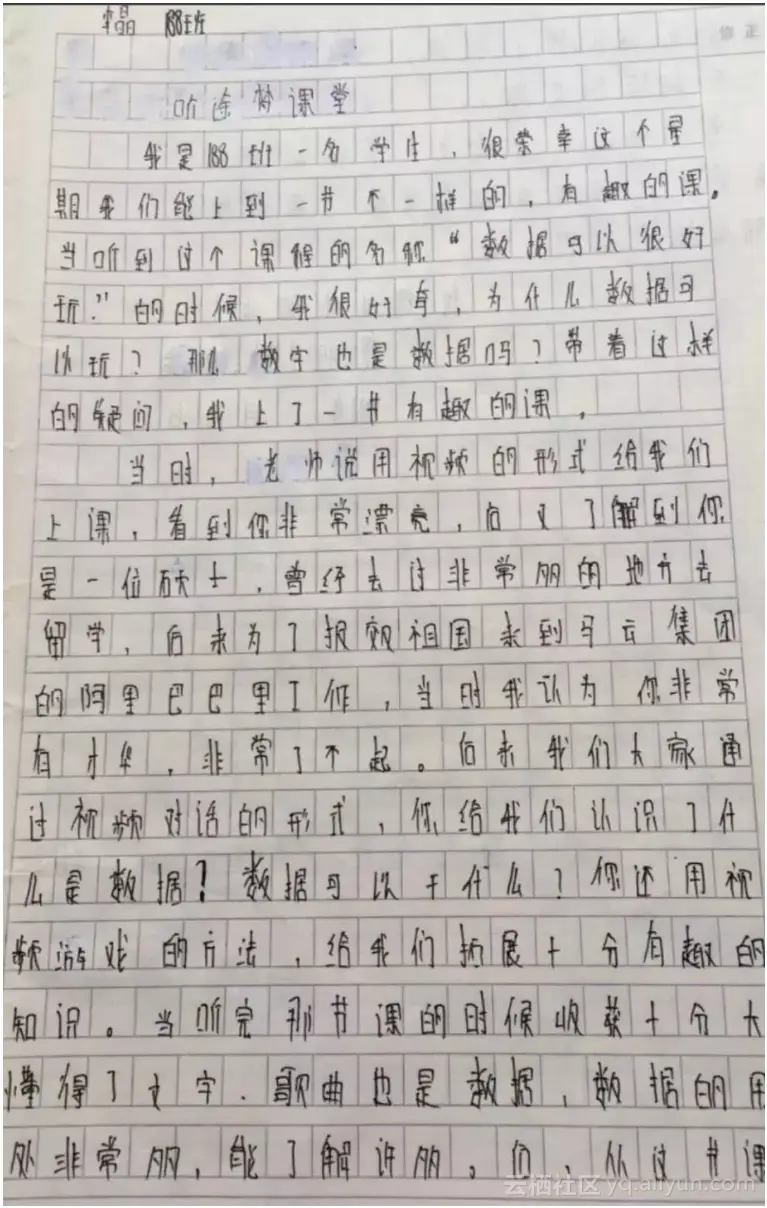 晶 188班
修正
听涂梦课堂
我是188班一名学生，很荣幸这个星
期我们能上到一节不一样的，有趣的课。
当听到这个课程的名称“数据可以很好
玩”的时候，我很好奇，为什么数据可
以玩？那么数字也是数据吗？带着这样
的疑问，我上了一节有趣的课。
当时，老师说用视频的形式给我们
上课，看到你非常漂亮，后又了解到你
是一位硕士，曾经去过非常多的地方去
留学，后来为了报效祖国来到马云集团
的阿里巴巴里工作，当时我认为你非常
有才华，非常了不起。后来我们大家通
过视频对话的形式，你给我们认识了什
么是数据？数据可以干什么？你还用视
频游戏的方法，给我们拓展十分有趣的
知识。当听完那节课的时候收获十分大
懂得了文字．歌曲也是数据，数据的用
处非常多，能了解许多。从这节课
云栖社区 yq.aliyun.com